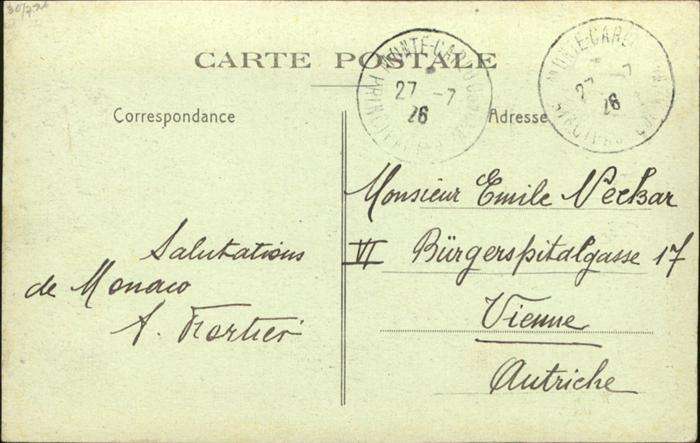 CARTE POSTALE
MONTE-CARLO
27 -7
26
MONTE-CARLO
27 -7
26
Correspondance
Adresse
Salutations
de Monaco
Monsieur Emile Neckar
VI Bürgerspitalgasse 17
Vienne
Autriche